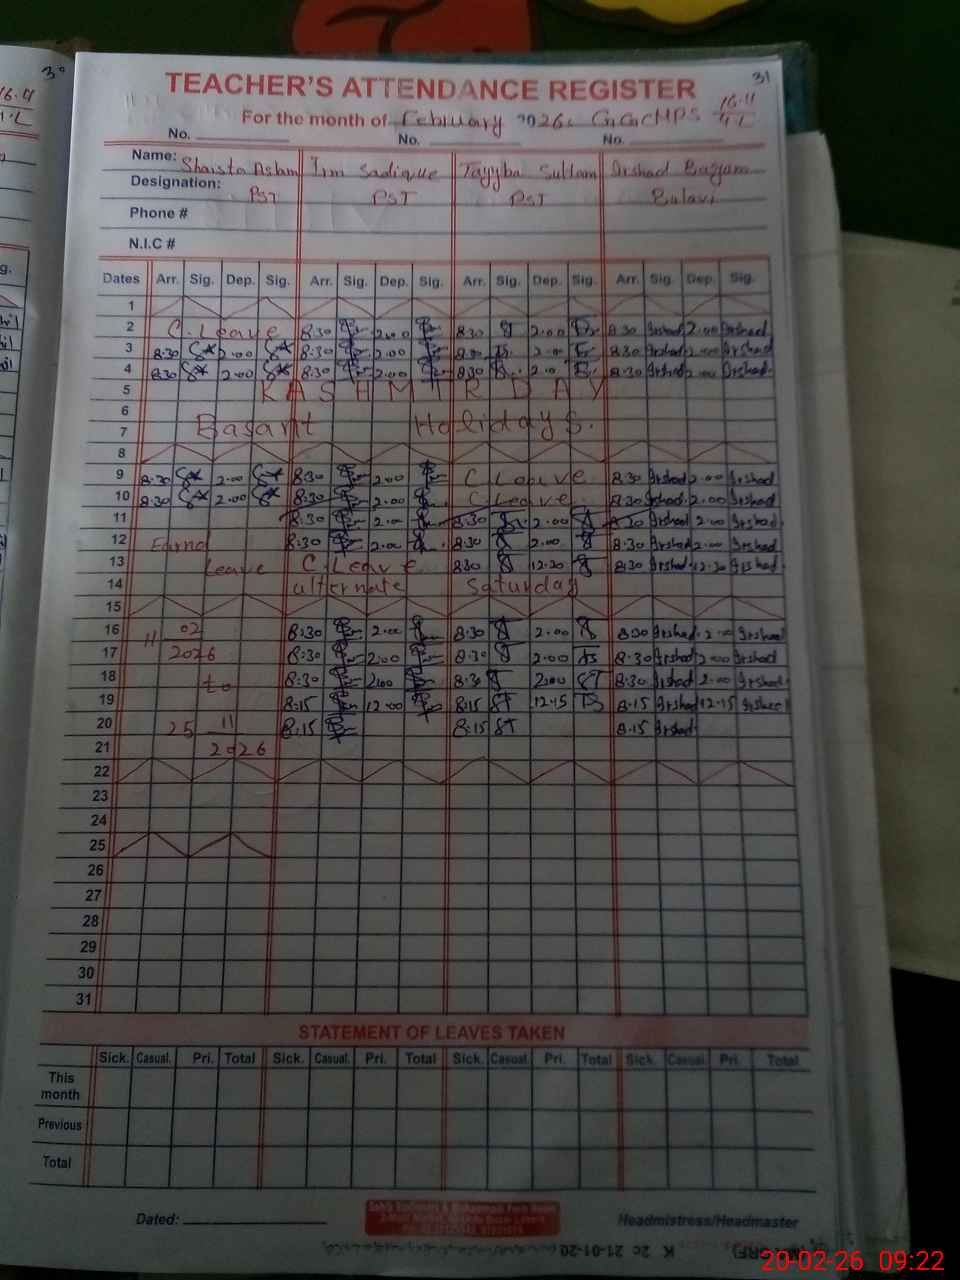 31
TEACHER'S ATTENDANCE REGISTER
16.11
For the month of February 2026. GGCMPS 4L
No. No. No.
Name: Shaista Aslam Irm Sadique Tayyba Sultam Irshad Bagum
Designation: PST PST PST Bulavi
Phone #
N.I.C #
Dates Arr. Sig. Dep. Sig. Arr. Sig. Dep. Sig. Arr. Sig. Dep. Sig. Arr. Sig. Dep. Sig.
1
2 C. Leave 8.30 2.00 8.30 2.00 8.30 Irshad 2.00 Irshad
3 8.30 2.00 8.30 2.00 8.30 2.00 8.30 Irshad 2.00 Irshad
4 8.30 2.00 8.30 2.00 8.30 2.00 8.30 Irshad 2.00 Irshad
5 KASHMIR DAY
6
7 Basant Holidays.
8
9 8.30 2.00 8.30 2.00 C Leave 8.30 Irshad 2.00 Irshad
10 8.30 2.00 8.30 2.00 C Leave 8.30 Irshad 2.00 Irshad
11 8.30 2.00 8.30 2.00 8.30 Irshad 2.00 Irshad
12 Earnd 8:30 2.00 8.30 2.00 8.30 Irshad 2.00 Irshad
13 Leave C. Leave 8.30 12.30 8.30 Irshad 12.30 Irshad
14 alternate Saturday
15
16 11 02 8:30 2.00 8.30 2.00 8.30 Irshad 2.00 Irshad
17 2026 8:30 2.00 8.30 2.00 8.30 Irshad 2.00 Irshad
18 to 8:30 2.00 8.30 2.00 ST 8.30 Irshad 2.00 Irshad
19 8:15 12.00 8.15 ST 12.15 TS 8.15 Irshad 12.15 Irshad
20 25 11 8:15 8.15 ST 8.15 Irshad
21 2026
22
23
24
25
26
27
28
29
30
31
STATEMENT OF LEAVES TAKEN
Sick. Casual. Pri. Total Sick. Casual. Pri. Total Sick. Casual. Pri. Total Sick. Casual. Pri. Total
This month
Previous
Total
Dated: Headmistress/Headmaster
20-02-26 09:22